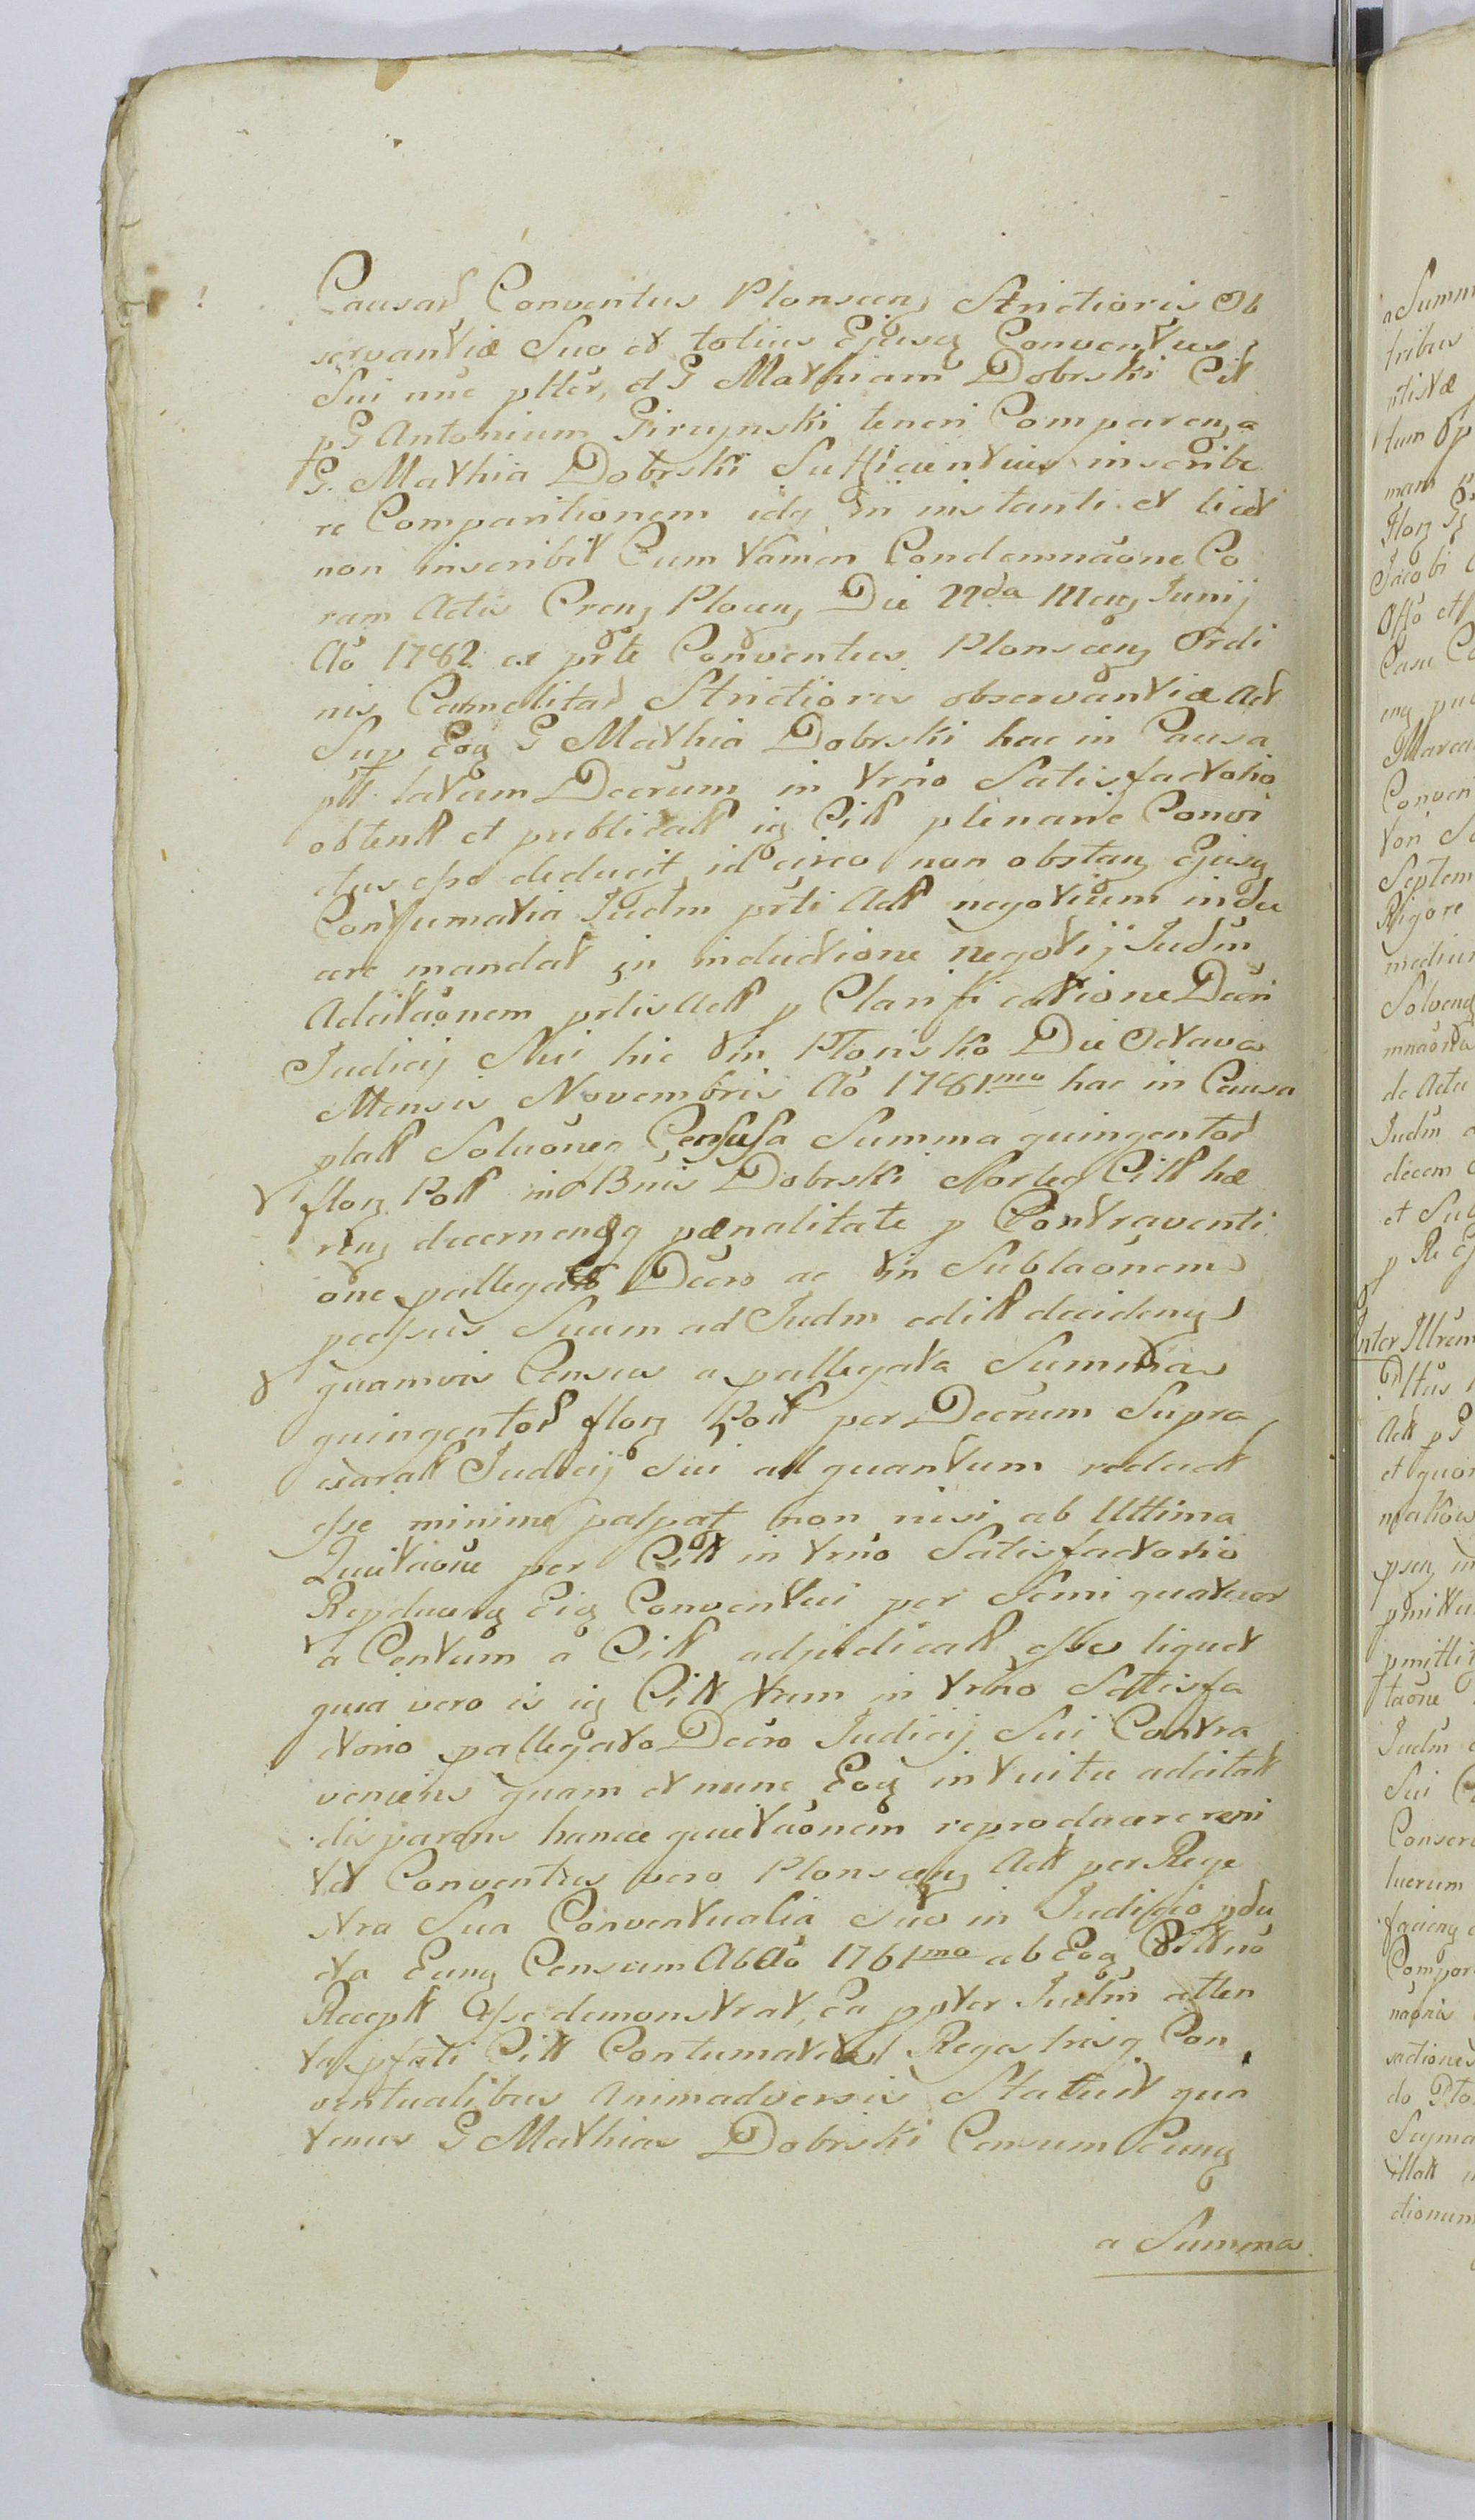 Causar Conventus Plonscen Strictioris Ob
servantiæ Suo et totius Ejusq Conventus
Sui nñe ptter, et G Mathiam Dobrski Cit
p G Antonium Girzynski teneri Comparenz a
G. Mathia Dobrski Sufficientius inscribe
re Comparitionem idq in instanti et licet
non inscribit Cum tamen Condemnãone Co
ram Actis Crenz Plocenz Die 22da Menz Junij
Aõ 1782 ex prte Conventus Plonscenz Ordi
nis Camelitar Strictioris observantiæ Act
Sup Eoq G Mathia Dobrski hac in Causa
ptt latum Decrum in trño Satisfactorio
obtentt et publicatt iq Citt plenarie Convi
ctus esse deducit, id circo non obstanz Ejusq
Contumatia Judm prti Actt negotium indu
cere mandat in inductione negotij Judm
Adcitãonem prtis Actt p Clarificatione Decri
Judicij Sui hic in Plonsko Die Octava
Mensis Novembris Aõ 1781mo hac in Causa
platt Soluõneq Censusa Summa quingentor
flor Poll in Bnis Dobrski Sorteq Citt hæ
renz decernenzq pœnalitate p Contraventi
one pallegato Decro ac in Sublaõnem
passus Suum ad Judm editt decidenz
quamvis Census a pallegata Summa
quingentor flor Poll per Decrum Supra
exaratt Judicij Sui ad quantum reductt
esse minime palpat non nisi ab Ultima
Quitãone per Citt in trño Satisfactorio
Repducenq Eiq Conventui per Semi quatuor
a Centum a Citt adjudicatt esse liquet
quia vero is iq Citt tum in trño Satisfa
ctorio pallegato Decro Judicij Sui Contra
veniens quam et nunc Eoq intuitu adcitatt
disparens hance quietãonem reproducere reni
tet Conventus vero Plonscenz Actt per Rege
stra Sua Conventualia Suo in Judicio pdu
cta Eunq Censum Ab Aõ 1761mo ab Eoq Citt nõ
Receptt Esse demonstrat, Ea ppter Judm atten
ta pfati Citt Contumatia Regestrisq Con
ventualibus animadversis Statuit qua
tenus G Mathias Dobrski Censum Eunq
a Summa